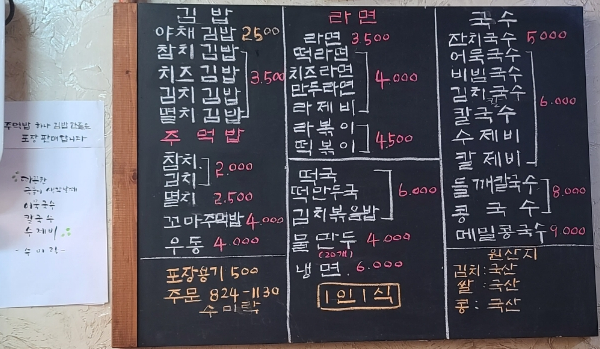 김밥
야채김밥 2500
참치김밥
치즈김밥
김치김밥
멸치김밥
3.500
주먹밥
참치
김치
2.000
멸치 2.500
꼬마주먹밥 4.000
우동 4.000
포장용기 500
주문 824-1130
수미락
라면
라면 3500
떡라면
치즈라면
만두라면
라제비
4.000
라볶이
떡볶이
4.500
떡국
떡만두국
김치볶음밥
6.000
물만두 4.000
(20개)
냉면 6.000
1인1식
국수
잔치국수 5.000
어묵국수
비빔국수
김치국수
칼국수
수제비
칼제비
6.000
들깨칼국수
콩국수
8.000
메밀콩국수 9.000
원산지
김치:국산
쌀:국산
콩:국산
주먹밥 하나 김밥 한줄도
포장 판매합니다
칼국수
수제비